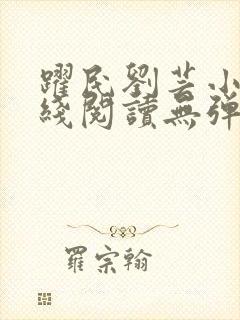 躍民劉芸小
綫閱讀無彈
羅宗翰